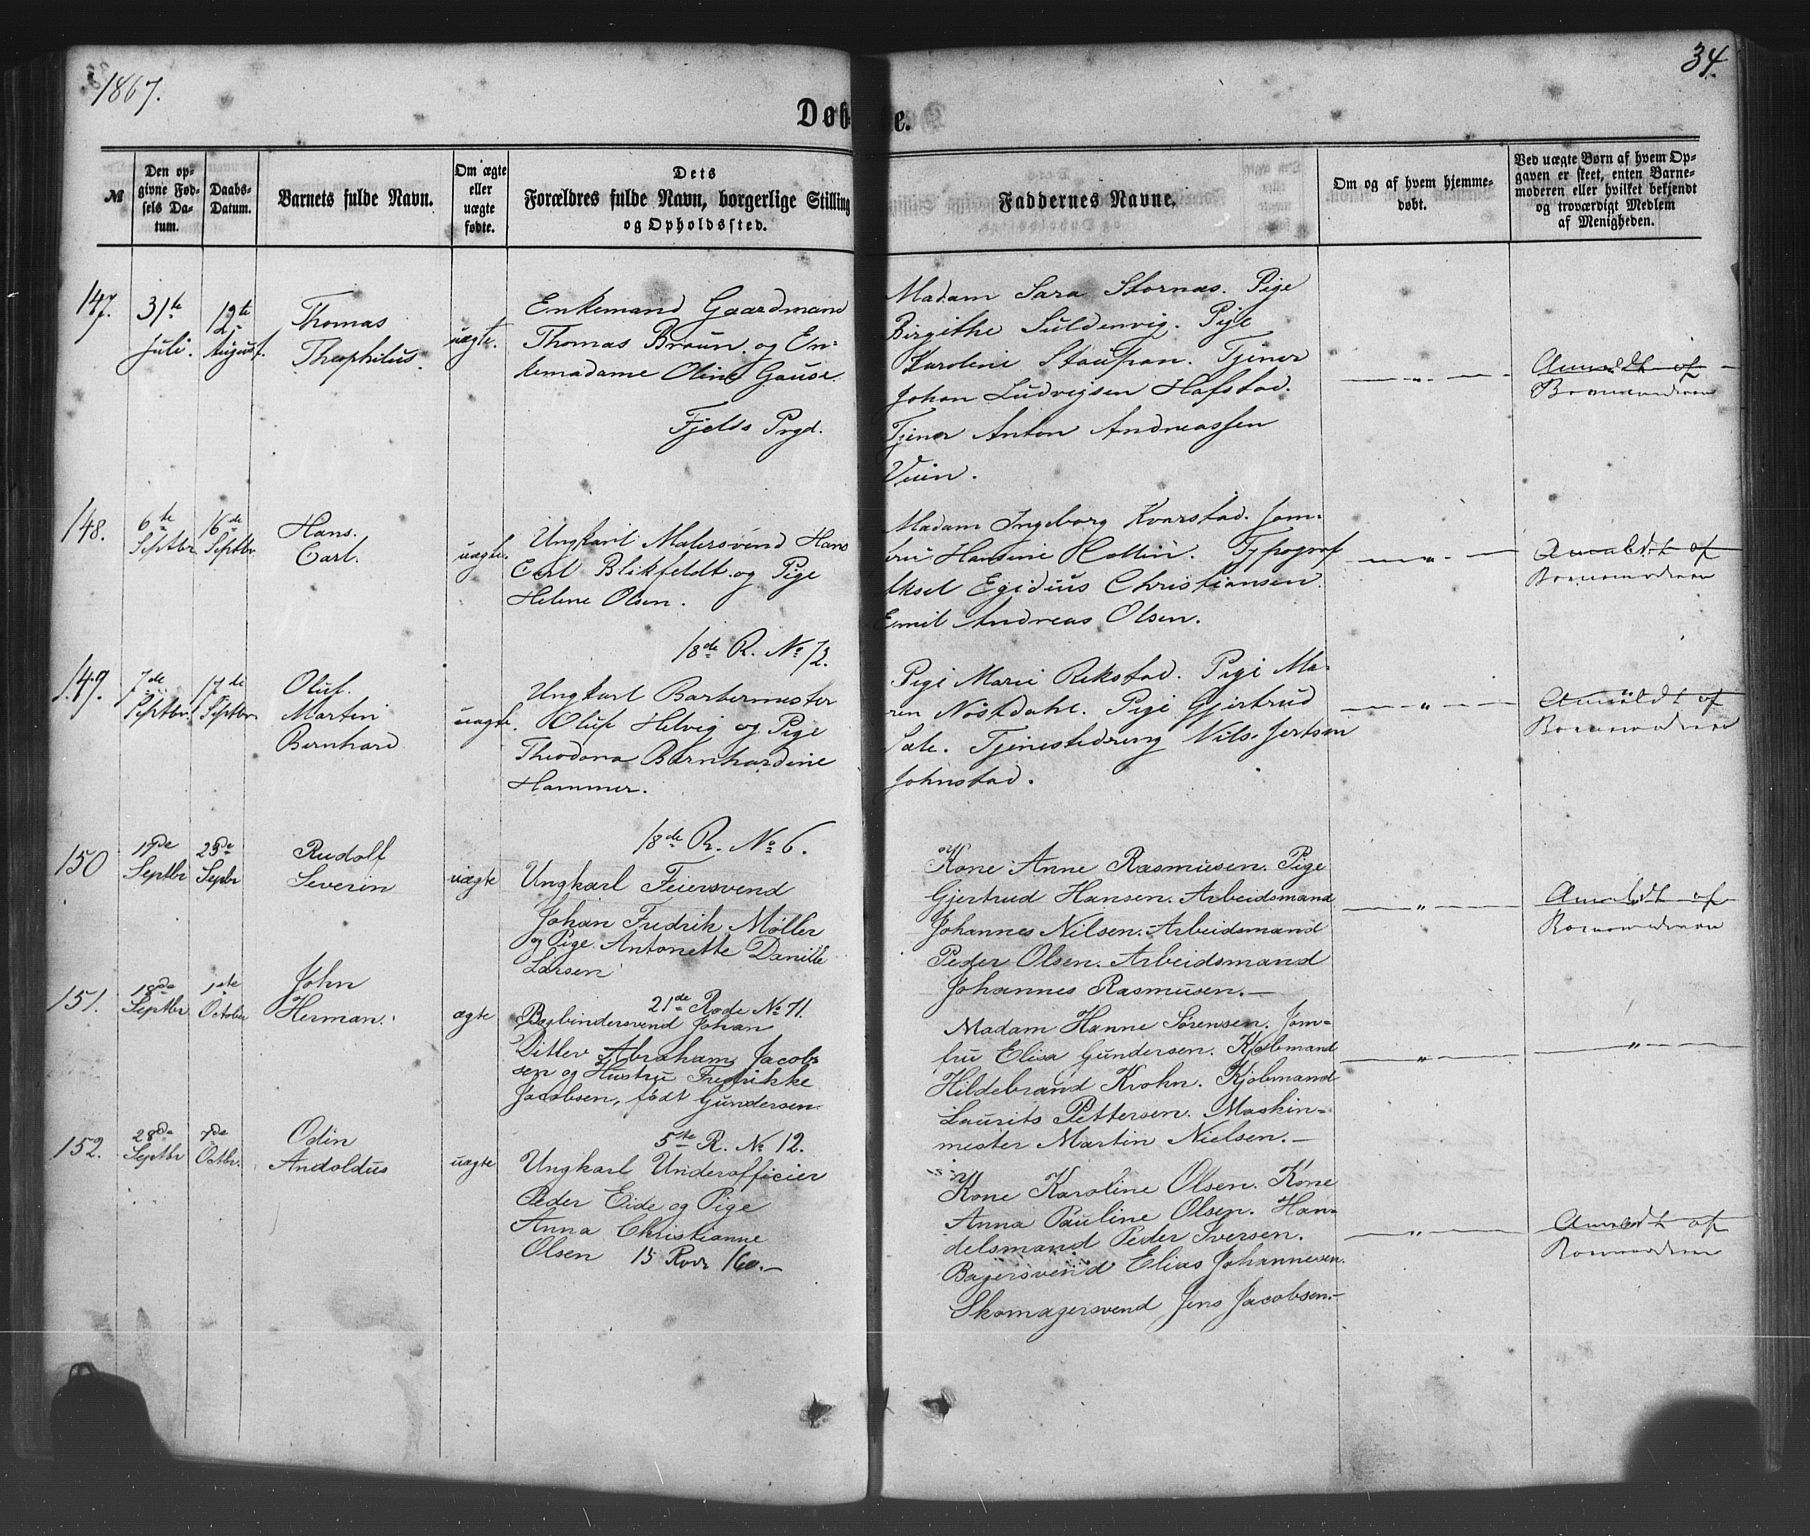 1867.
34.
Døb e.
№
Den op-
givne Fød-
sels Da-
tum.
Daabs-
Datum.
Barnets fulde Navn.
Om ægte
eller
uægte
fødte.
Dets
Forældres fulde Navn, borgerlige Stilling
og Opholdssted.
Faddernes Navne.
Om og af hvem hjemme-
døbt.
Ved uægte Børn af hvem Op-
gaven er skeet, enten Barne-
moderen eller hvilket bekjendt
og troværdigt Medlem
af Menigheden.
147.
31te
Juli.
12te
August.
Thomas
Theophilus.
uægte.
Enkemand Gaardmand
Thomas Braun og En-
kemadame Oline Gause.
Fjelds Prgd.
Madam Sara Stornas. Pige
Birgithe Suldenvig. Pige
Karoline Tjener
Johan Ludvigsen Hafstad.
Tjener Anton Andreassen
Veien.
— " —
Anmeldt af
Barnemoderen
148.
6te
Septbr.
16de
Septbr.
Hans.
Carl.
uægte.
Ungkarl Malersvend Hans
Carl Blikfeldt og Pige
Helene Olsen.
18de R. No 72.
Madam Ingeborg Kvarstad. Jom-
fru Hansine Typograf
Aksel Egidius Christiansen.
Emil Andreas Olsen.
— " —
Anmeldt af
Barnemoderen
149.
7de
Septbr.
17de
Septbr.
Oluf.
Martin
Bernhard
uægte.
Ungkarl Barbermester
Oluf Helvig og Pige
Theodora Bernhardine
Hammer.
18de R. No 6.
Pige Marie Rekstad. Pige Ma-
ren Nøstdahl. Pige Gjertrud
Sæle. Tjenestedreng Nils Jertsen
Johnstad.
— " —
Anmeldt af
Barnemoderen
150
17de
Septbr
25de
Septbr
Rudolf
Severin
uægte
Ungkarl Feiersvend
Johan Fredrik Møller
og Pige Antonette Danille
Larsen
21de Rode No 71.
Kone Anne Rasmusen. Pige
Gjertrud Hansen. Arbeidsmand
Johannes Nilsen. Arbeidsmand
Peder Olsen. Arbeidsmand
Johannes Rasmusen.—
— " —
Anmeldt af
Barnemoderen
151.
18de
Septbr
1ste
October
John
Herman.
ægte
Bogbindersvend Johan
Ditlev Abraham Jacob-
sen og Hustru Fredrikke
Jacobsen, født Gundersen.
5te R. No 12.
Madam Hanne Sørensen. Jom-
fru Elisa Gundersen. Kjøbmand
Hildebrand Krohn. Kjøbmand
Laurits Pettersen. Maskin-
mester Martin Nielsen.—
— " —
— " —
152.
28de
Septbr
7de
Octbr.
Odin
Andoldus
uægte
Ungkarl Underofficier
Peder Eide og Pige
Anna Christianne
Olsen 15 Rode 160.—
Kone Karoline Olsen. Kone
Anna Pauline Olsen. Han-
delsmand Peder Iversen.
Bagersvend Elias Johannesen.
Skomagersvend Jens Jacobsen.—
— " —
Anmeldt af
Barnemoderen